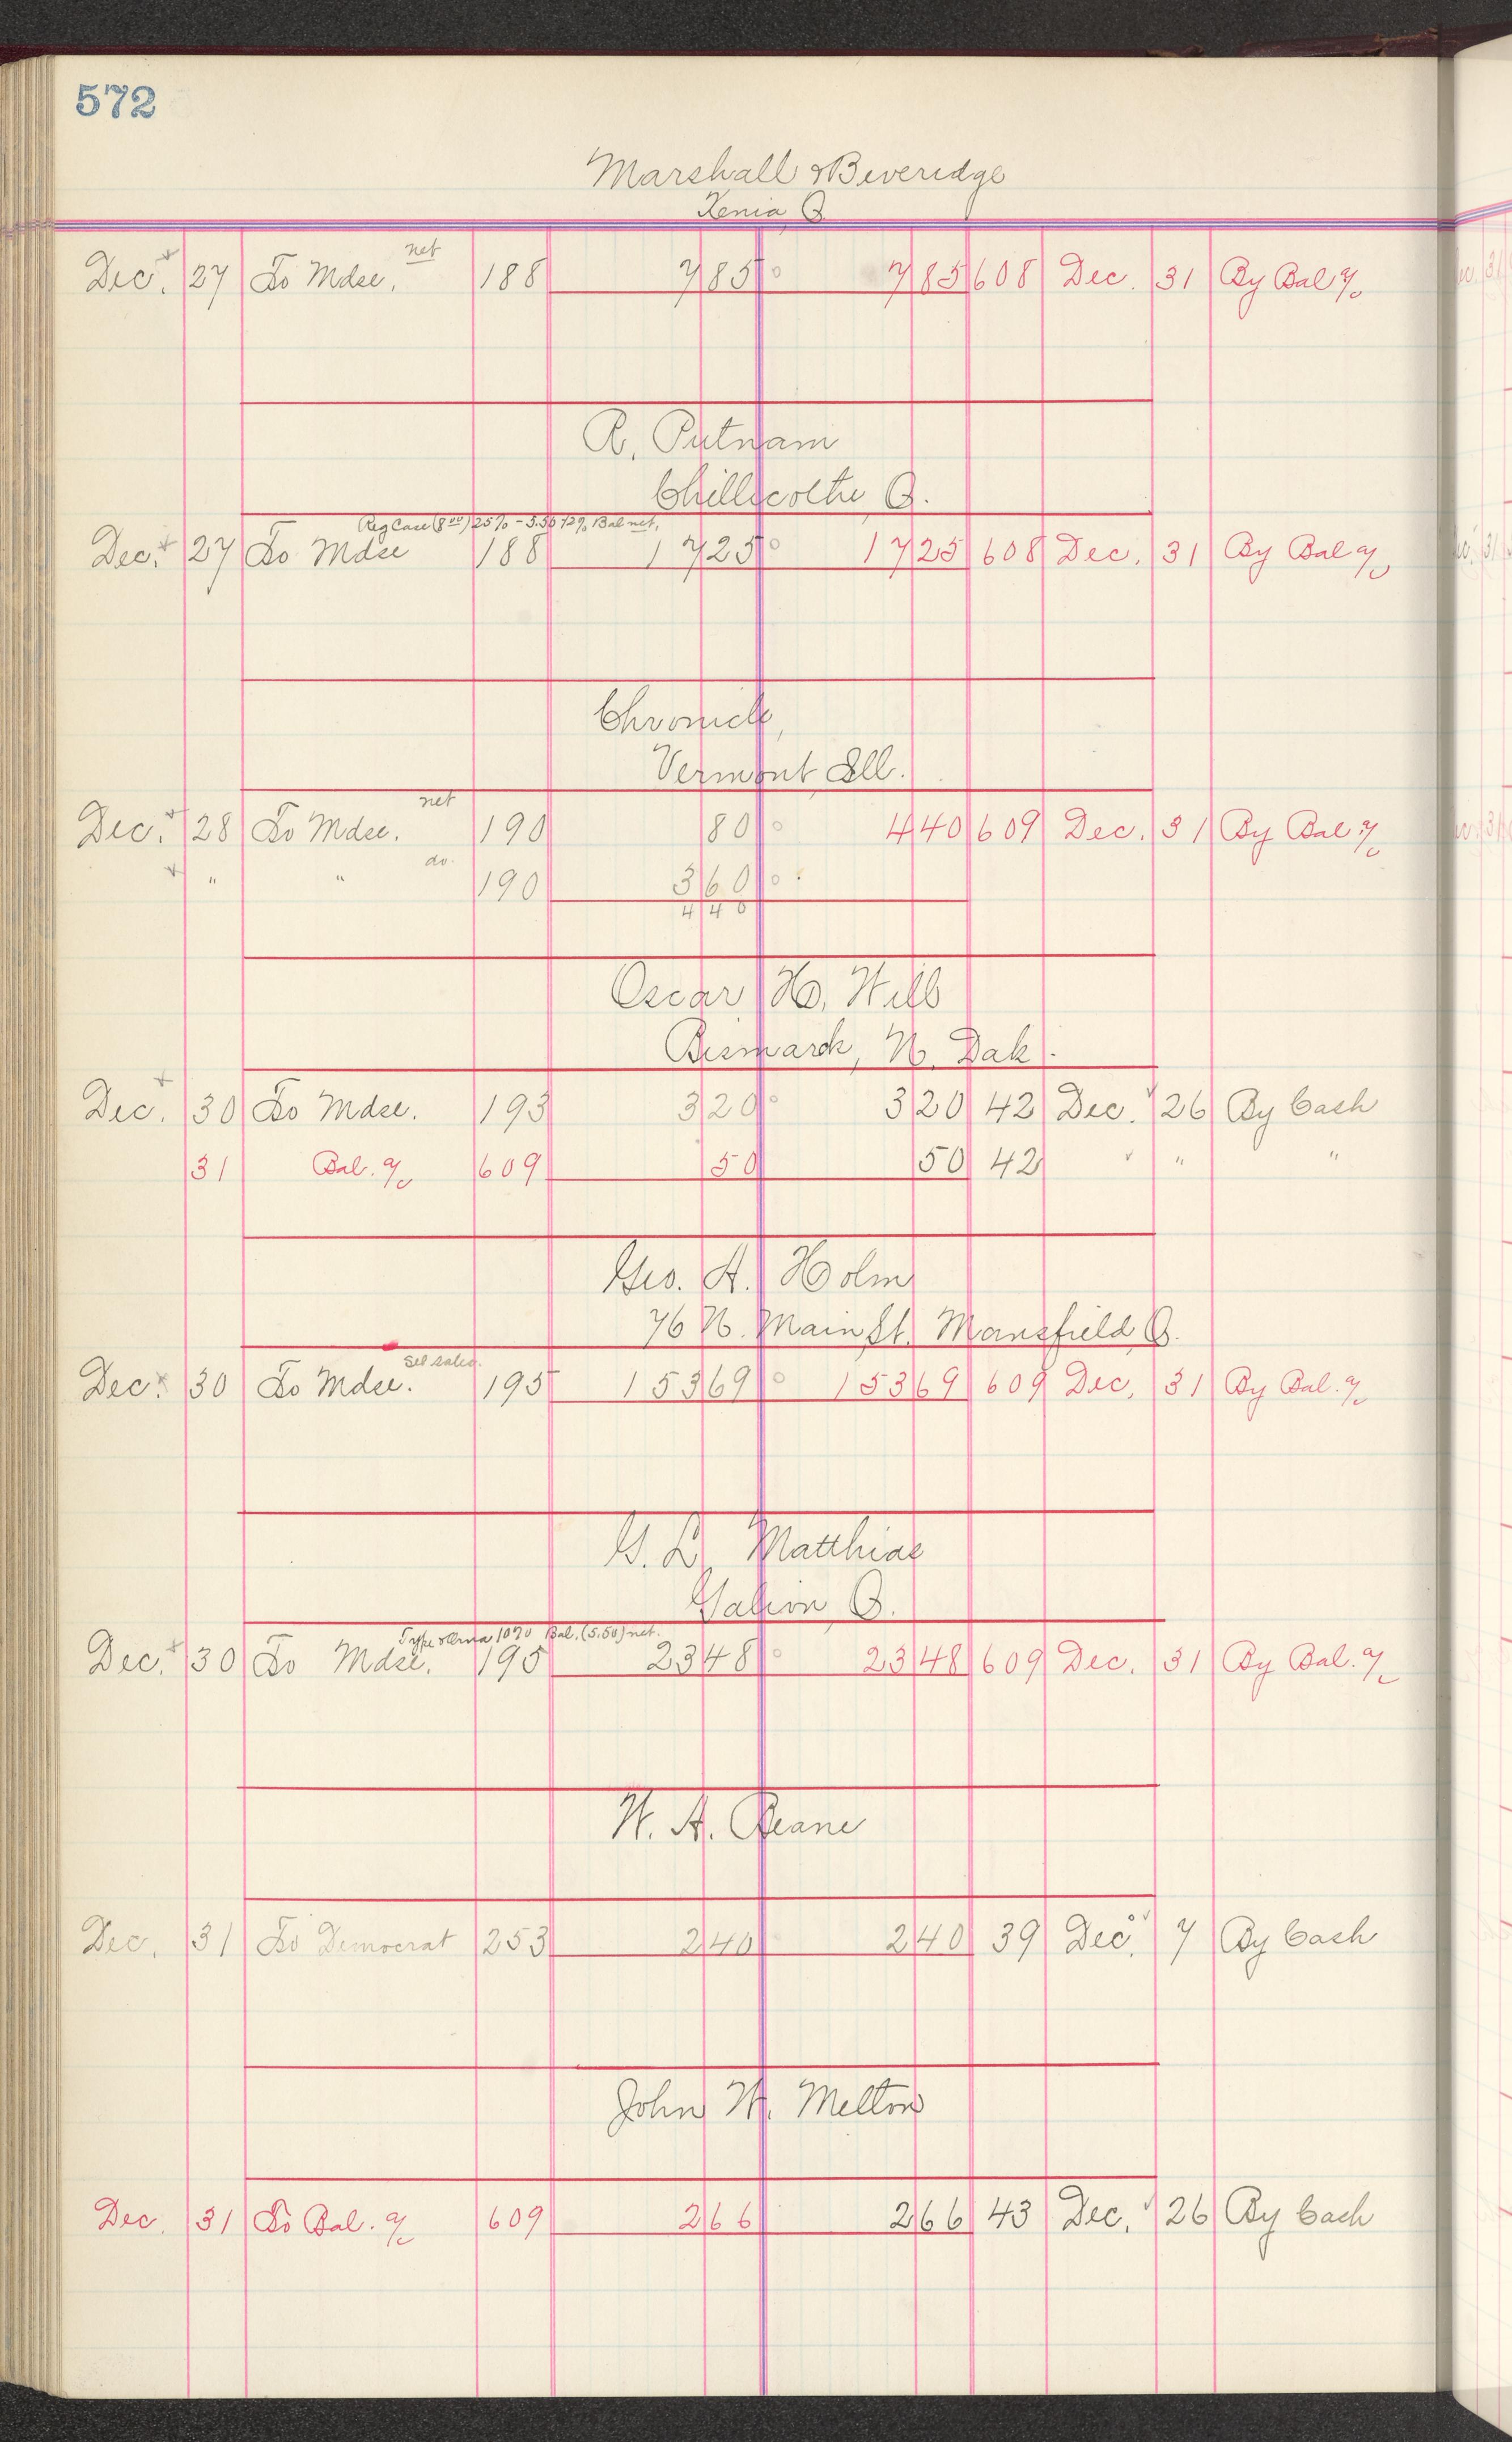 572
Marshall & Beveridge
Xenia O
net
Dec. 27 To Mdse. 188 7 85 7 85 608 Dec. 31 By Bal a/c
R. Putnam
Chillicothe O.
Reg Case (8 00) 25% - 5.50 12% Bal net.
Dec. 27 To Mdse 188 17 25 17 25 608 Dec. 31 By Bal a/c
Chronicle,
Vermont Ill.
net
Dec. 28 To Mdse. 190 80 4 40 609 Dec. 31 By Bal a/c
do.
" " 190 3 60
4 40
Oscar H. Will
Bismarck, N. Dak.
Dec. 30 To Mdse. 193 3 20 3 20 42 Dec. 26 By Cash
31 Bal. a/c 609 50 50 42 " "
Geo. A. Holm
76 N. Main St. Mansfield O.
See sales.
Dec. 30 To Mdse. 195 153 69 153 69 609 Dec. 31 By Bal. a/c
G. L. Matthias
Galion O.
10% Bal. (5.50) net.
Dec. 30 To Mdse. 195 23 48 23 48 609 Dec. 31 By Bal. a/c
W. A. Beane
Dec. 31 To Democrat 253 2 40 2 40 39 Dec. 7 By Cash
John W. Melton
Dec. 31 To Bal. a/c 609 2 66 2 66 43 Dec. 26 By Cash